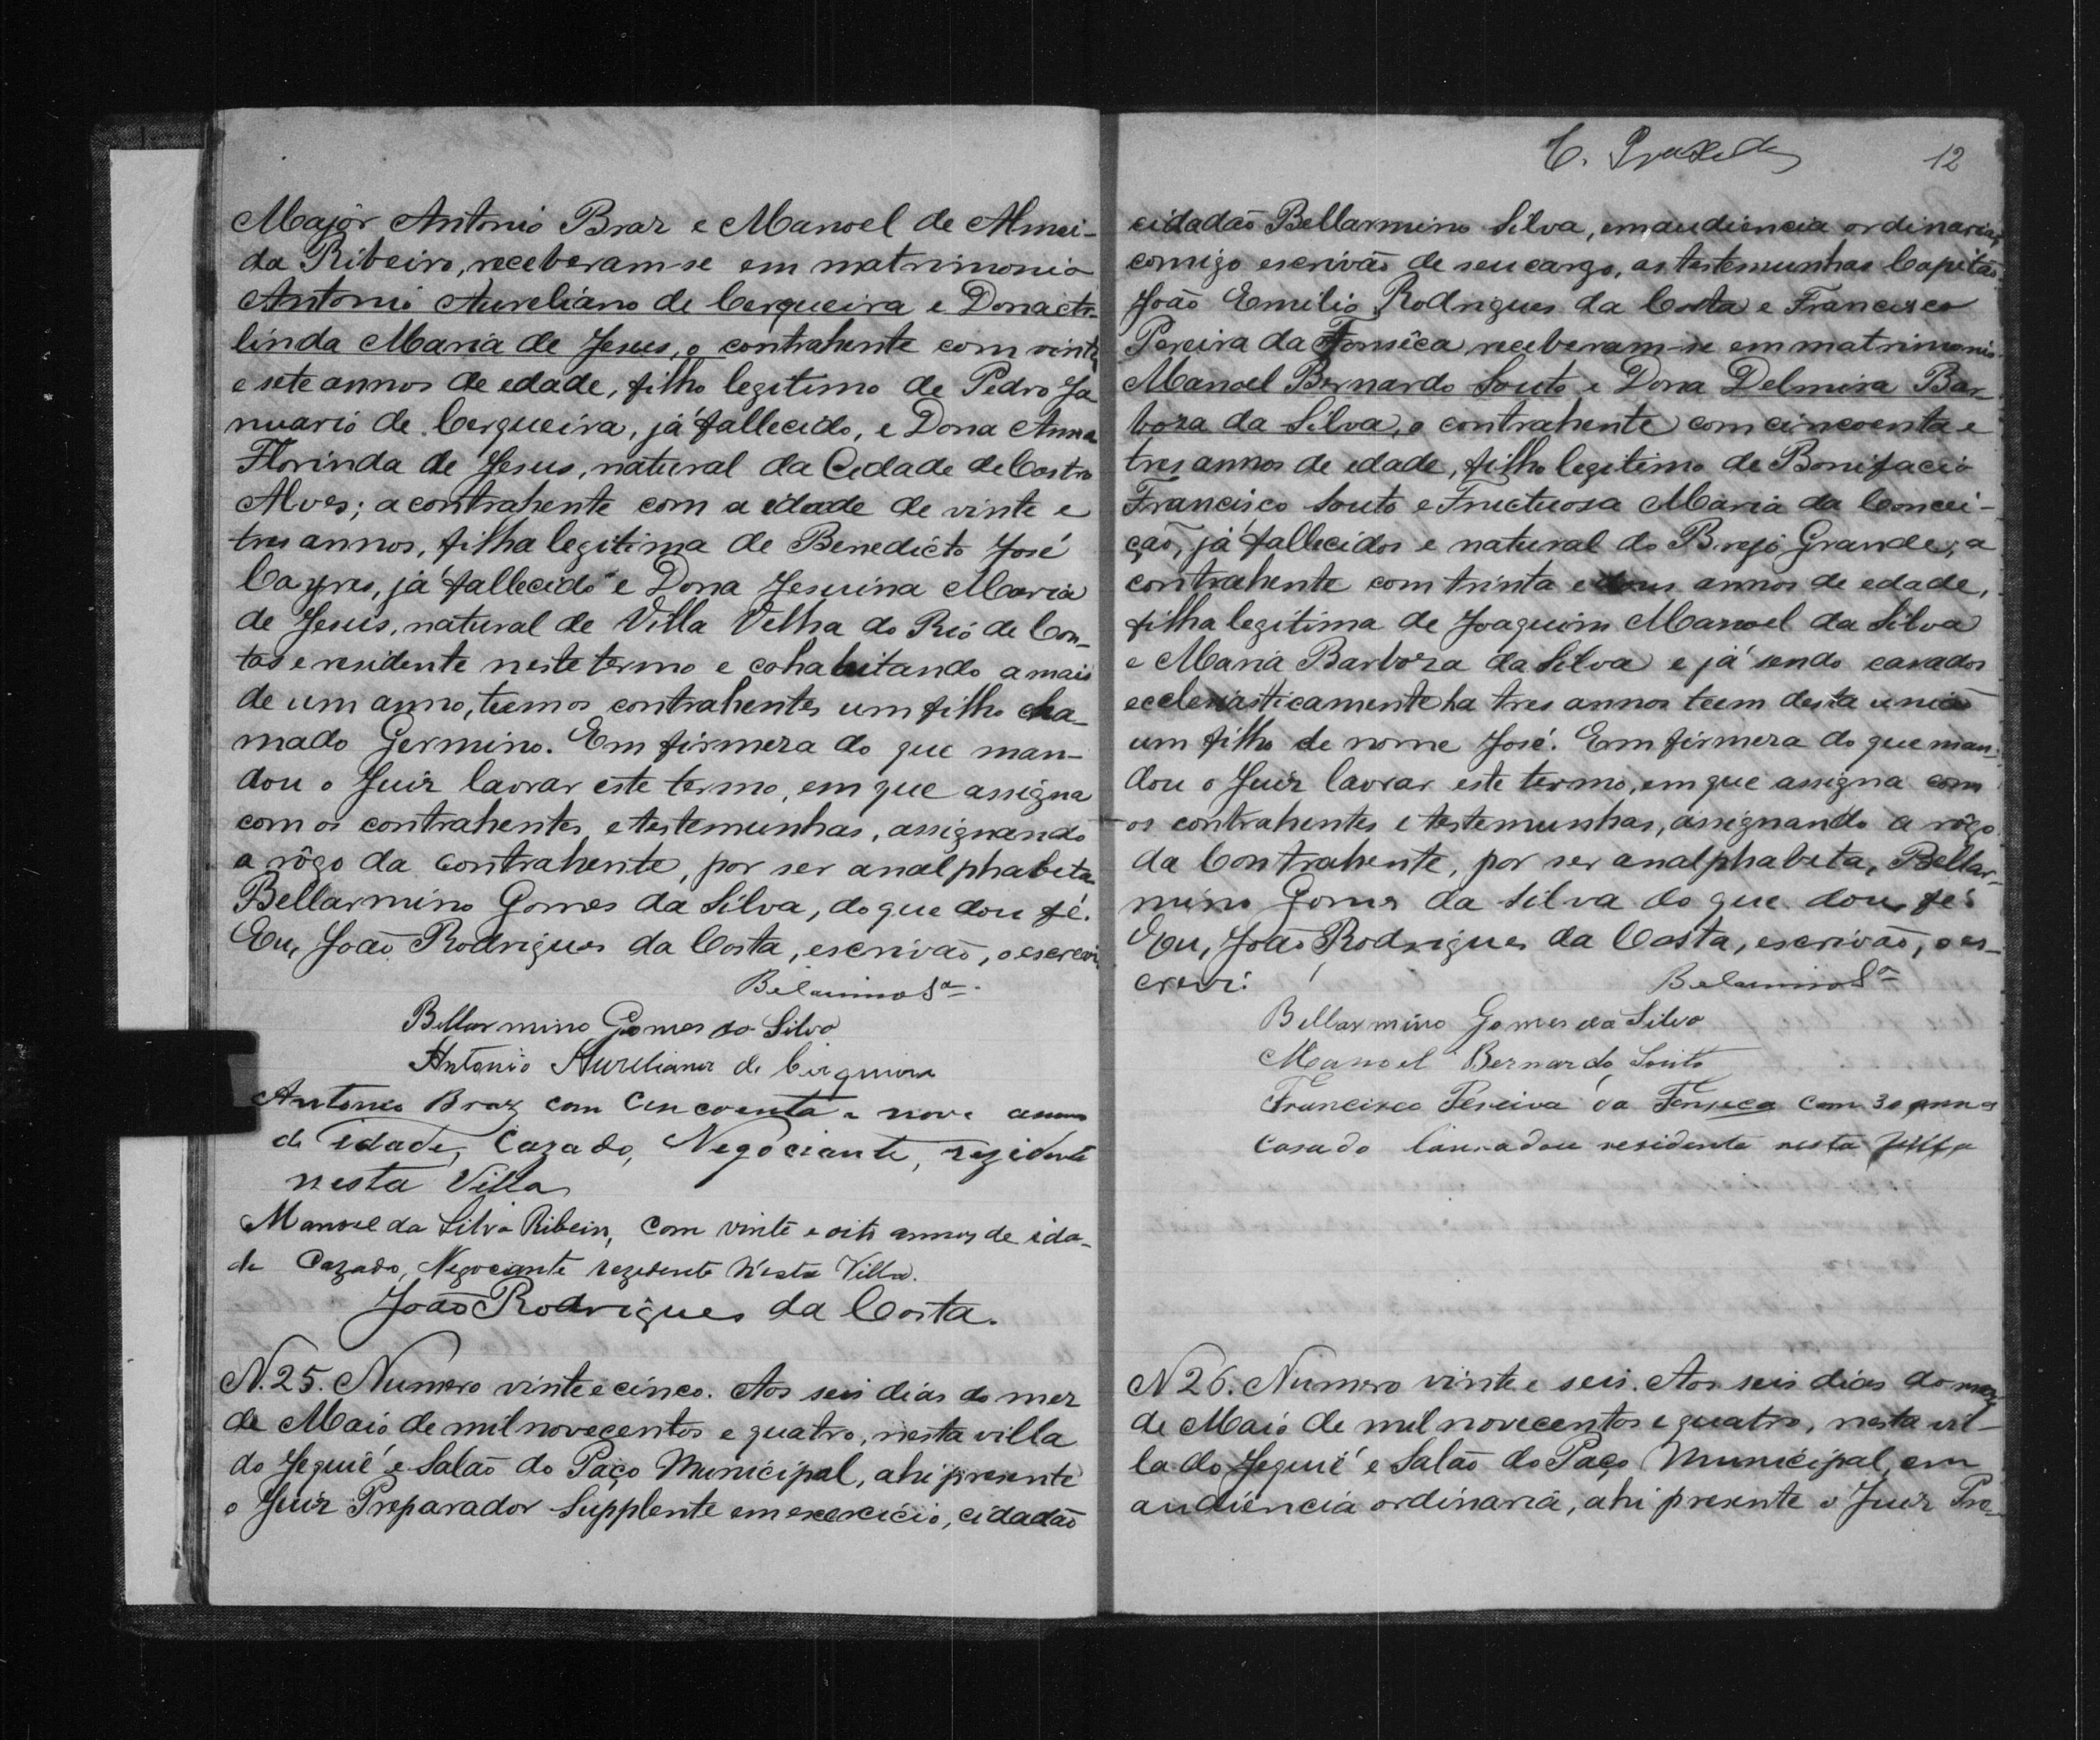 Majôr Antonio Braz e Manoel de Almei-
da Ribeiro, receberam-se em matrimonio
Antonio Aureliano de Cerqueira e Dona
linda Maria de Jesus, o contrahente com vinte
e sete annos de edade, filho legitimo de Pedro Ja
nuario de Cerqueira, já fallecido, e Dona Anna
Florinda de Jesus, natural da Cidade de Castro
Alves; a contrahente com a idade de vinte e
tres annos, filha legitima de Benedicto José
Cayres, já fallecido e Dona Jesuina Maria
de Jesus, natural de Villa Velha do Rio de Con-
tas e residente neste termo e cohabitando a mais
de um anno, teem os contrahentes um filho cha-
mado Germino. Em firmeza do que man-
dou o Juiz lavrar este termo, em que assigna
com os contrahentes e testemunhas, assignando
a rôgo da contrahente, por ser analphabeta
Bellarmino Gomes da Silva, do que dou fé.
Eu, João Rodrigues da Costa, escrivão, o escrevi.
Belarmino Sª
Bellarmino Gomes da Silva
Antonio Aureliano de Cirqueira
Antonio Braz com Cincoenta e nove annos
de idade, Cazado, Negociante, rezidente
nesta Villa
Manoel da Silva Ribeiro, com vinte e oito annos de ida-
de Cazado, Negociante rezidente nesta Villa.
João Rodrigues da Costa.
N. 25. Numero vinte e cinco. Aos seis dias do mez
de Maio de mil novecentos e quatro, nesta villa
do Jequié e Salão do Paço Municipal, ahi presente
o Juiz Preparador Supplente em exercicio, cidadão
12
cidadão Bellarmino Silva, em audiencia ordinaria,
comigo escrivão de seu cargo, as testemunhas Capitão
João Emilio Rodrigues da Costa e Francisco
Pereira da Fonsêca, receberam-se em matrimonio
Manoel Bernardo Souto e Dona Delmira Bar-
boza da Silva, o contrahente com cincoenta e
tres annos de edade, filho legitimo de Bonifacio
Francisco Souto e Fructuosa Maria da Concei-
ção, já fallecidos e natural do Brejo Grande; a
contrahente com trinta e annos de edade,
filha legitima de Joaquim Manoel da Silva
e Maria Barboza da Silva e já sendo casados
ecclesiasticamente ha tres annos teem desta união
um filho de nome José. Em firmeza do que man-
dou o Juiz lavrar este termo, em que assigna com
os contrahentes e testemunhas, assignando a rôgo
da Contrahente, por ser analphabeta, Bellar-
mino Gomes da Silva do que dou fé.
Eu, João Rodrigues da Costa, escrivão, o es-
crevi.
Belarmino Sª
Bellarmino Gomes da Silva
Manoel Bernardo Souto
Francisco Pereira da Fonseca com 30 annos
Casado lavrador residente nesta Villa
N 26. Numero vinte e seis. Aos seis dias do mez
de Maio de mil novecentos e quatro, nesta vil-
la do Jequié e Salão do Paço Municipal, em
audiencia ordinaria, ahi presente o Juiz Pre-